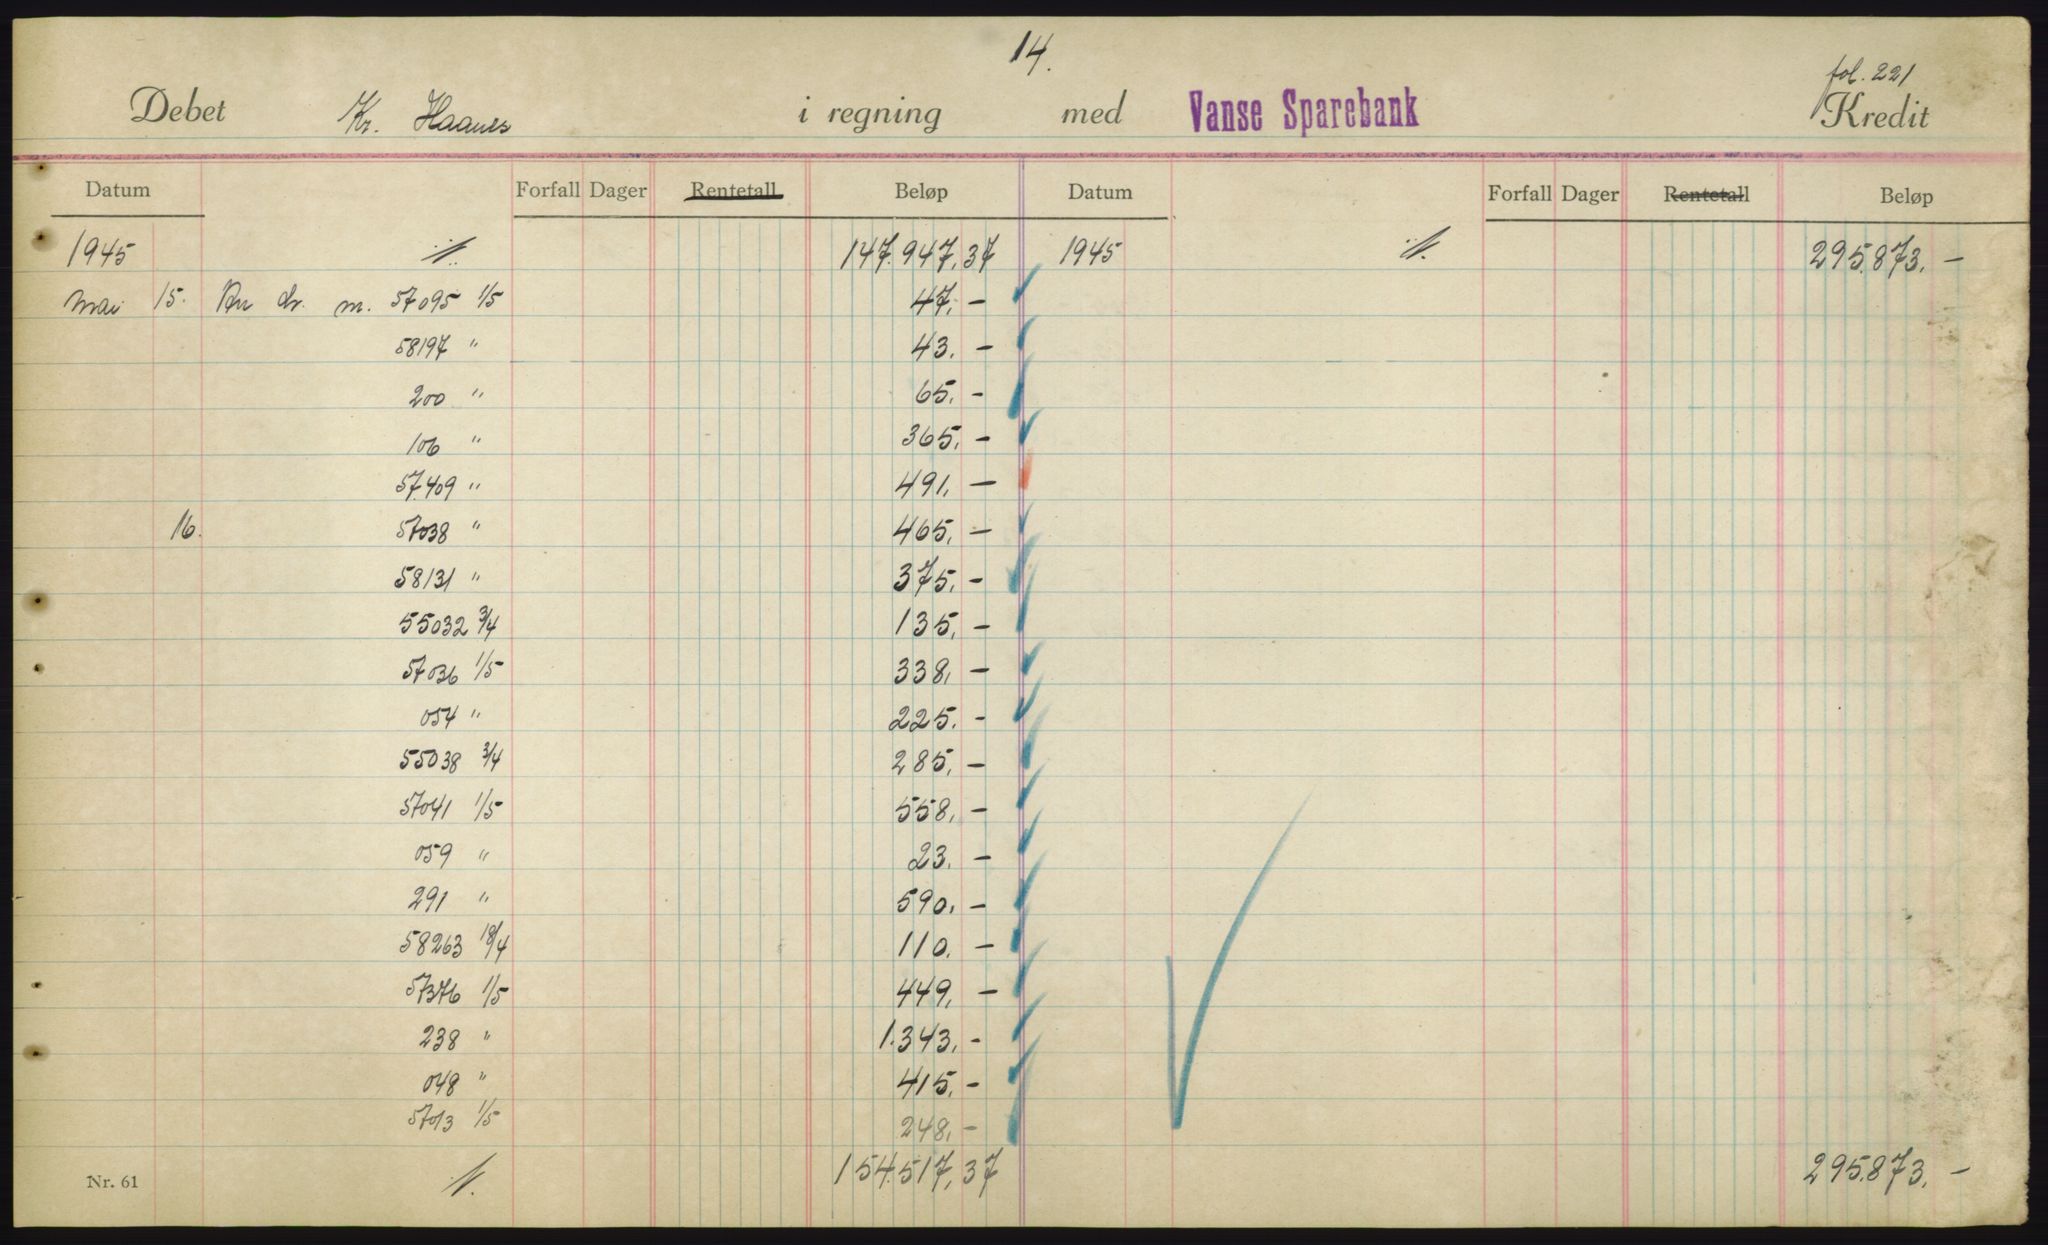 14.
fol. 221
Debet Kr. Haanes i regning med Vanse Sparebank Kredit
Datum Forfall Dager Rentetall Beløp Datum Forfall Dager Rentetall Beløp
1945 147.947,37 1945 295.873.-
mai 15. An dr. m. 57095 1/5 47,-
58197 " 43.-
200 " 65.-
106 " 365.-
57409 " 491.-
16. 57038 " 465.-
58131 " 375.-
55032 3/4 135.-
57036 1/5 338.-
054 " 225.-
55038 3/4 285.-
57041 1/5 558.-
059 " 23.-
291 " 590.-
58263 18/4 110.-
57376 1/5 449.-
238 " 1.343.-
048 " 415.-
57013 1/5 248.-
Nr. 61 154.517,37 295.873.-